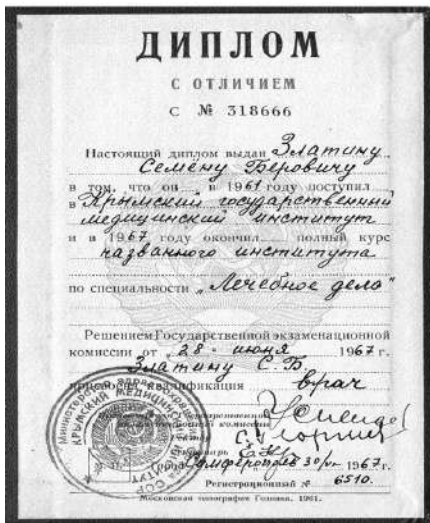 ДИПЛОМ
С ОТЛИЧИЕМ
С № 318666
Настоящий диплом выдан Златину
Семёну Беровичу
в том, что он в 1961 году поступил
в Крымский государственный
медицинский институт
и в 1967 году окончил полный курс
названного института
по специальности „Лечебное дело"
Решением Государственной экзаменационной
комиссии от „28" июня 1967 г.
Златину С. Б.
присвоена квалификация врач
Председатель Государственной
экзаменационной комиссии
Ректор
Секретарь
Город Симферополь 30/VI 1967 г.
Регистрационный № 6510.
Московская типография Гознака. 1961.
КРЫМСКИЙ МЕДИЦИНСКИЙ